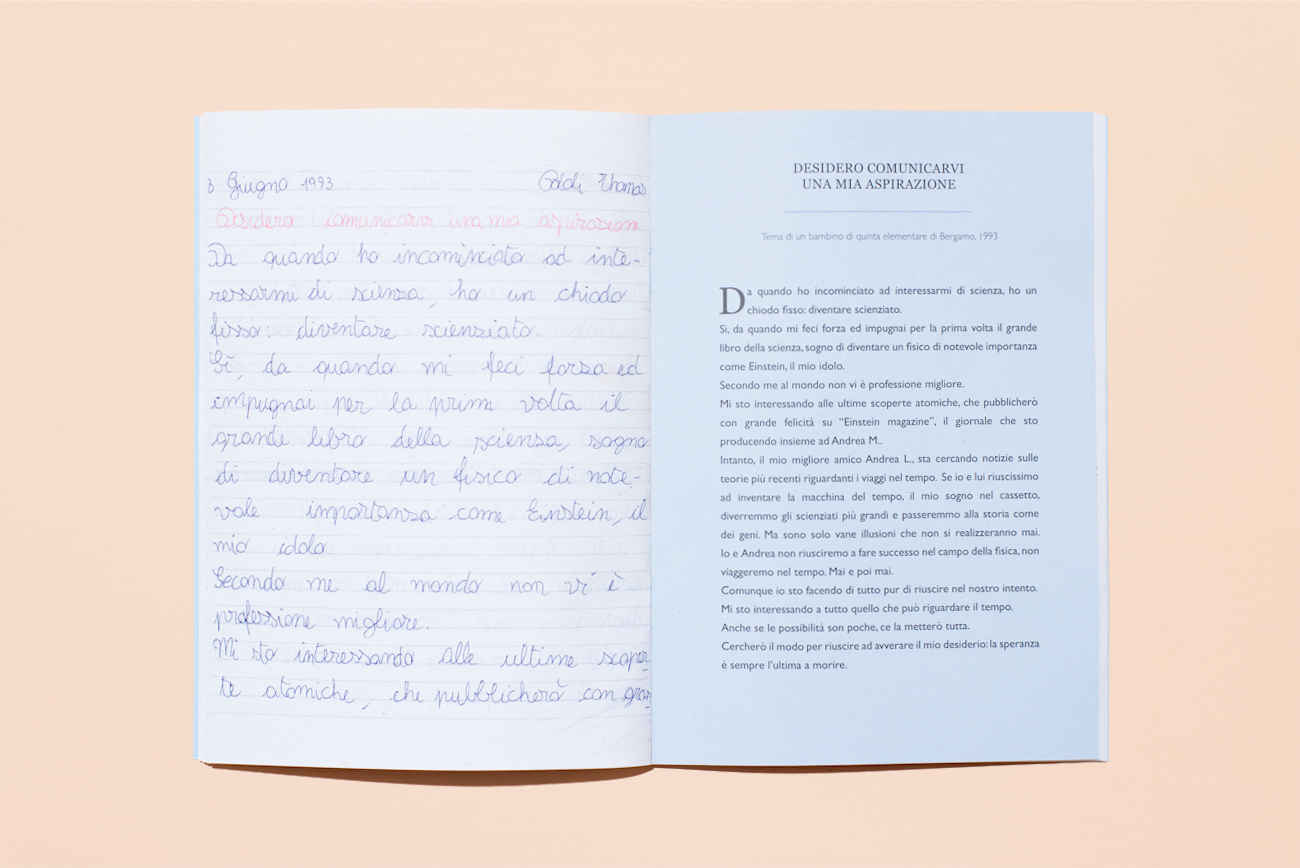 3 Giugno 1993 Thomas
Desidero comunicarvi una mia aspirazione
Da quando ho incominciato ad inte-
ressarmi di scienza, ho un chiodo
fisso: diventare scienziato.
Sì, da quando mi feci forza ed
impugnai per la prima volta il
grande libro della scienza, sogno
di diventare un fisico di note-
vole importanza come Einstein, il
mio idolo.
Secondo me al mondo non vi è
professione migliore.
Mi sto interessando alle ultime scoper-
te atomiche, che pubblicherò con gran-
DESIDERO COMUNICARVI
UNA MIA ASPIRAZIONE
Tema di un bambino di quinta elementare di Bergamo, 1993
Da quando ho incominciato ad interessarmi di scienza, ho un
chiodo fisso: diventare scienziato.
Sì, da quando mi feci forza ed impugnai per la prima volta il grande
libro della scienza, sogno di diventare un fisico di notevole importanza
come Einstein, il mio idolo.
Secondo me al mondo non vi è professione migliore.
Mi sto interessando alle ultime scoperte atomiche, che pubblicherò
con grande felicità su “Einstein magazine”, il giornale che sto
producendo insieme ad Andrea M..
Intanto, il mio migliore amico Andrea L., sta cercando notizie sulle
teorie più recenti riguardanti i viaggi nel tempo. Se io e lui riuscissimo
ad inventare la macchina del tempo, il mio sogno nel cassetto,
diverremmo gli scienziati più grandi e passeremmo alla storia come
dei geni. Ma sono solo vane illusioni che non si realizzeranno mai.
Io e Andrea non riusciremo a fare successo nel campo della fisica, non
viaggeremo nel tempo. Mai e poi mai.
Comunque io sto facendo di tutto pur di riuscire nel nostro intento.
Mi sto interessando a tutto quello che può riguardare il tempo.
Anche se le possibilità son poche, ce la metterò tutta.
Cercherò il modo per riuscire ad avverare il mio desiderio: la speranza
è sempre l’ultima a morire.